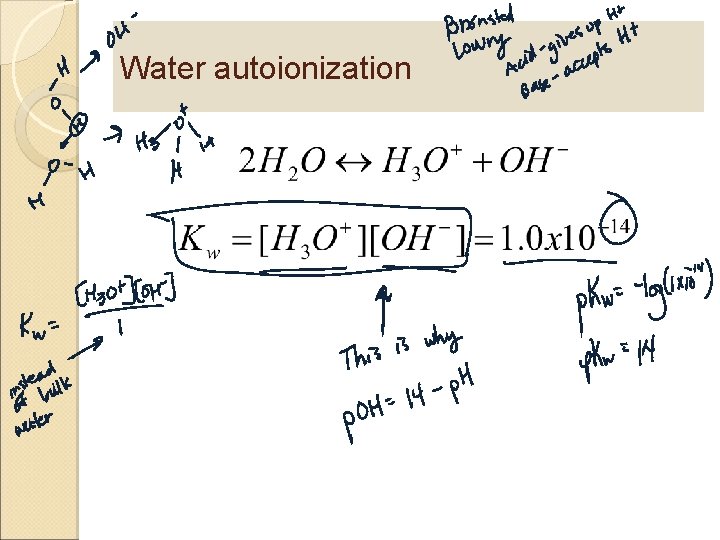 OH⁻
Brønsted
Lowry
Acid - gives up H⁺
Base - accepts H⁺
Water autoionization
H
O
H
O - H
H
H₃ O⁺ H
H
2H₂O ↔ H₃O⁺ + OH⁻
K_w = [H₃O⁺][OH⁻] = 1.0x10⁻¹⁴
K_w = [H₃O⁺][OH⁻]
1
instead
of bulk
water
This is why
pOH = 14 - pH
pK_w = -log(1x10⁻¹⁴)
pK_w = 14